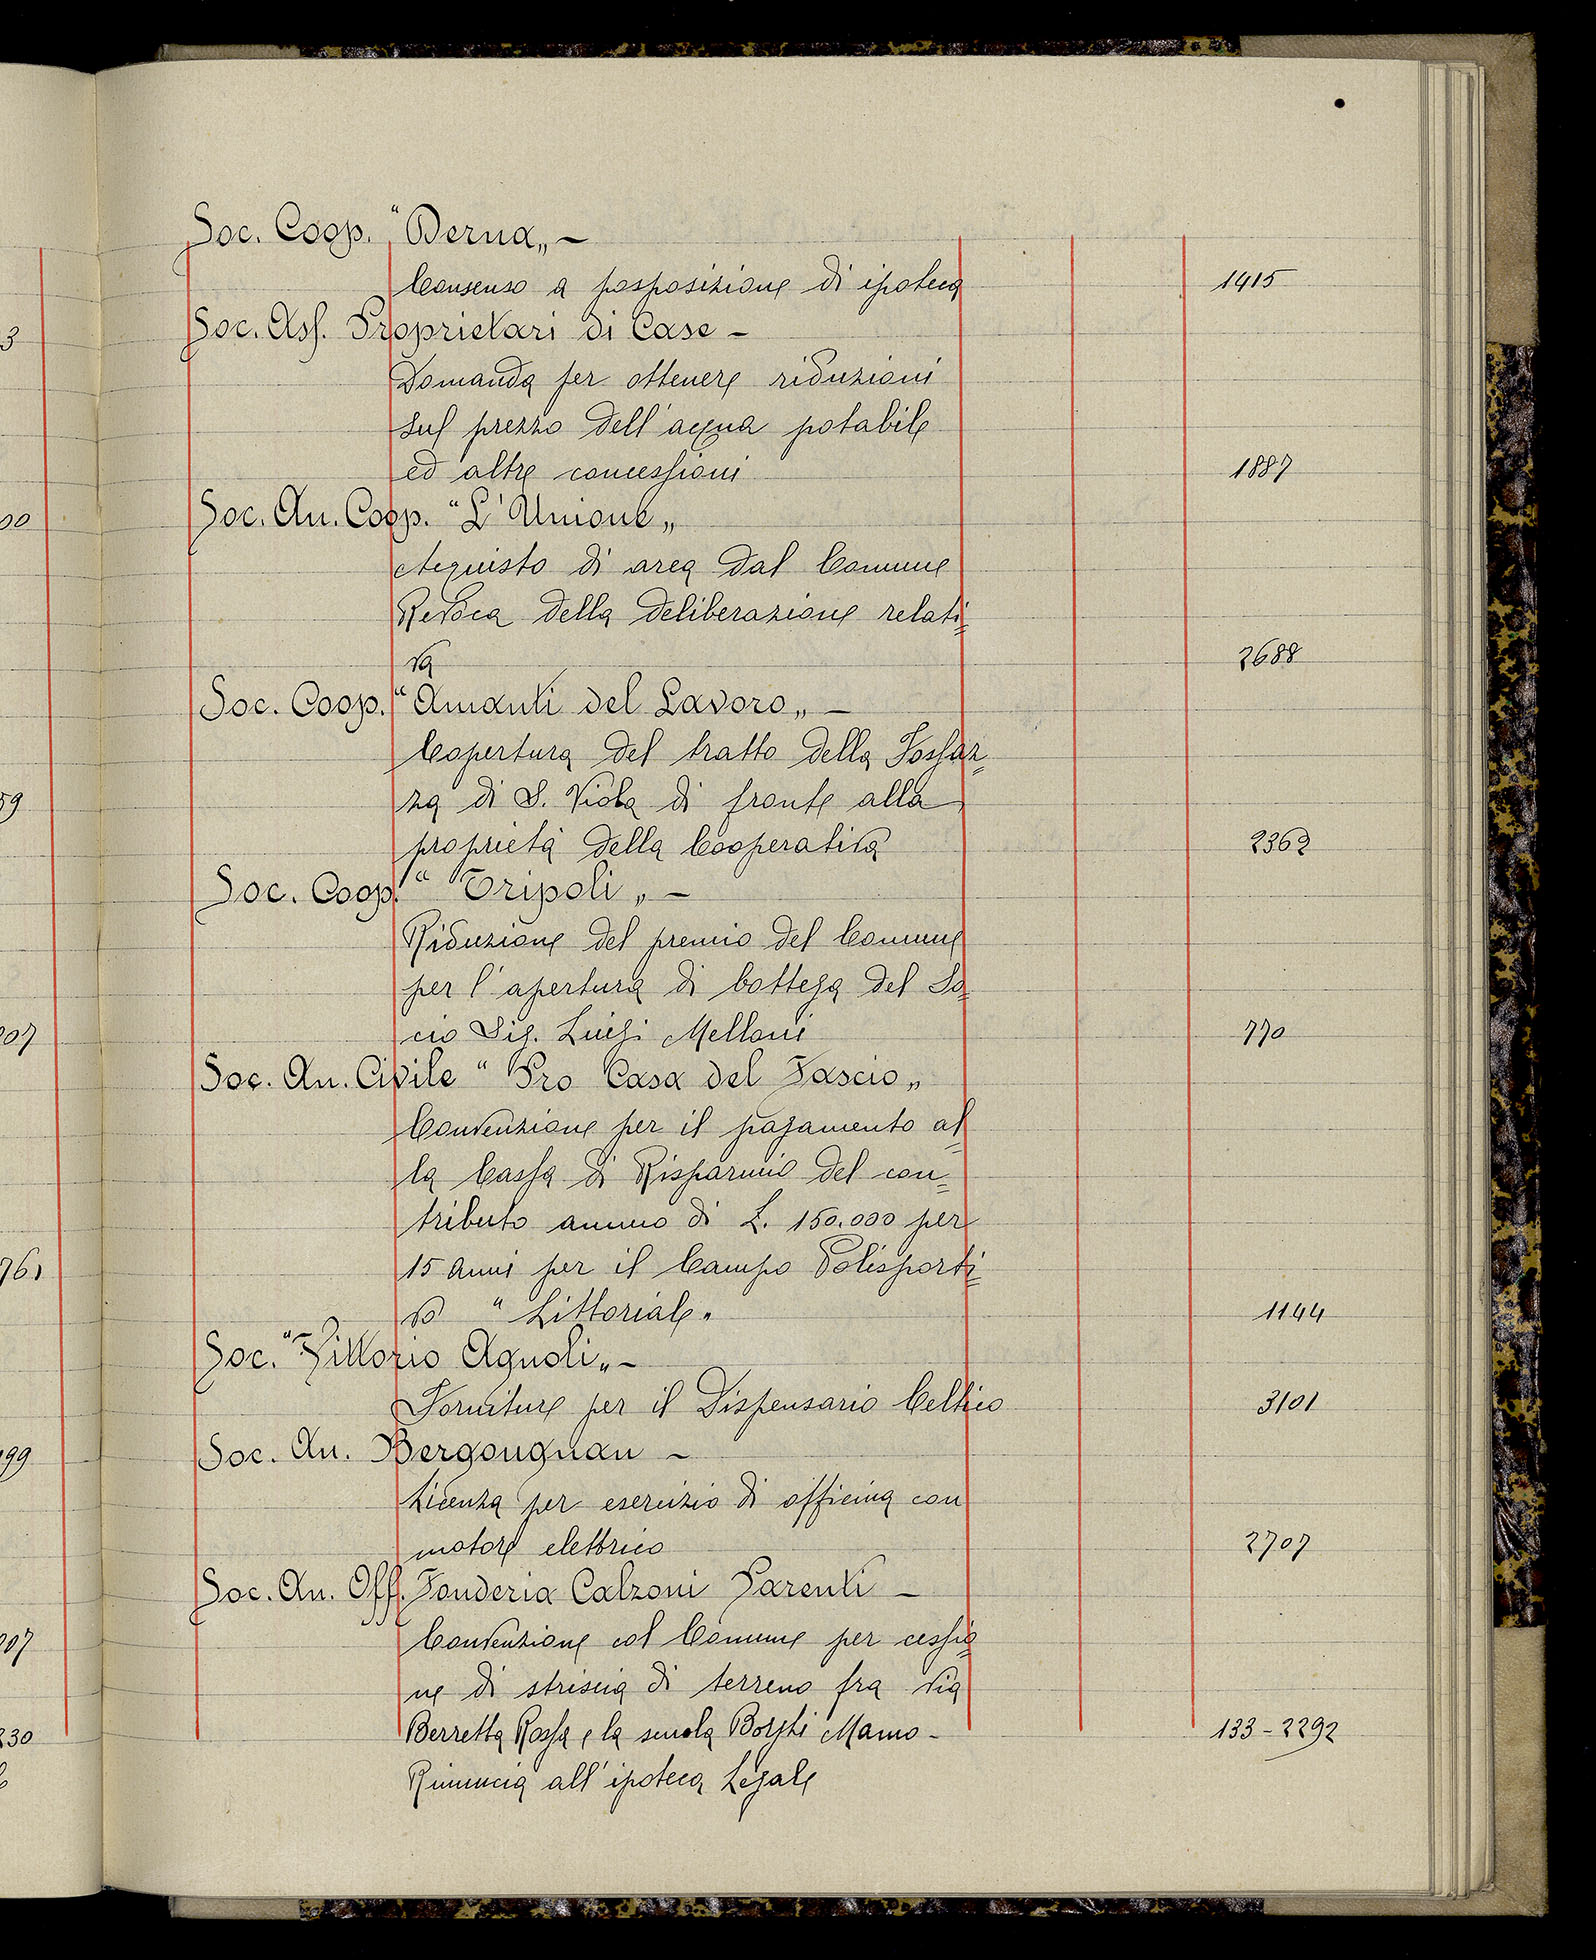 Soc. Coop. "Derna„ –
Consenso a posposizione di ipoteca 1415
Soc. Ass. Proprietari di Case –
Domanda per ottenere riduzioni
sul prezzo dell'acqua potabile
ed altre concessioni 1887
Soc. An. Coop. "L'Unione„
Acquisto di area dal Comune
Revoca della deliberazione relati=
va 2688
Soc. Coop. "Amanti del Lavoro„ –
Copertura del tratto della Fossaz=
za di S. Viola di fronte alla
proprietà della Cooperativa 2362
Soc. Coop. "Tripoli„ –
Riduzione del premio del Comune
per l'apertura di bottega del So=
cio Sig. Luigi Melloni 770
Soc. An. Civile "Pro Casa del Fascio„
Convenzione per il pagamento al=
la Cassa di Risparmio del con=
tributo annuo di L. 150.000 per
15 anni per il Campo Polisporti=
vo "Littoriale„ 1144
Soc. "Vittorio Agnoli„ –
Forniture per il Dispensario Celtico 3101
Soc. An. Bergougnan –
Licenza per esercizio di officina con
motore elettrico 2707
Soc. An. Off. Fonderia Calzoni Parenti –
Convenzione col Comune per cessio=
ne di striscia di terreno fra via
Berretta Rossa e la scuola Borghi Mamo – 133–2292
Rinuncia all'ipoteca Legale
3
00
59
207
761
199
207
230